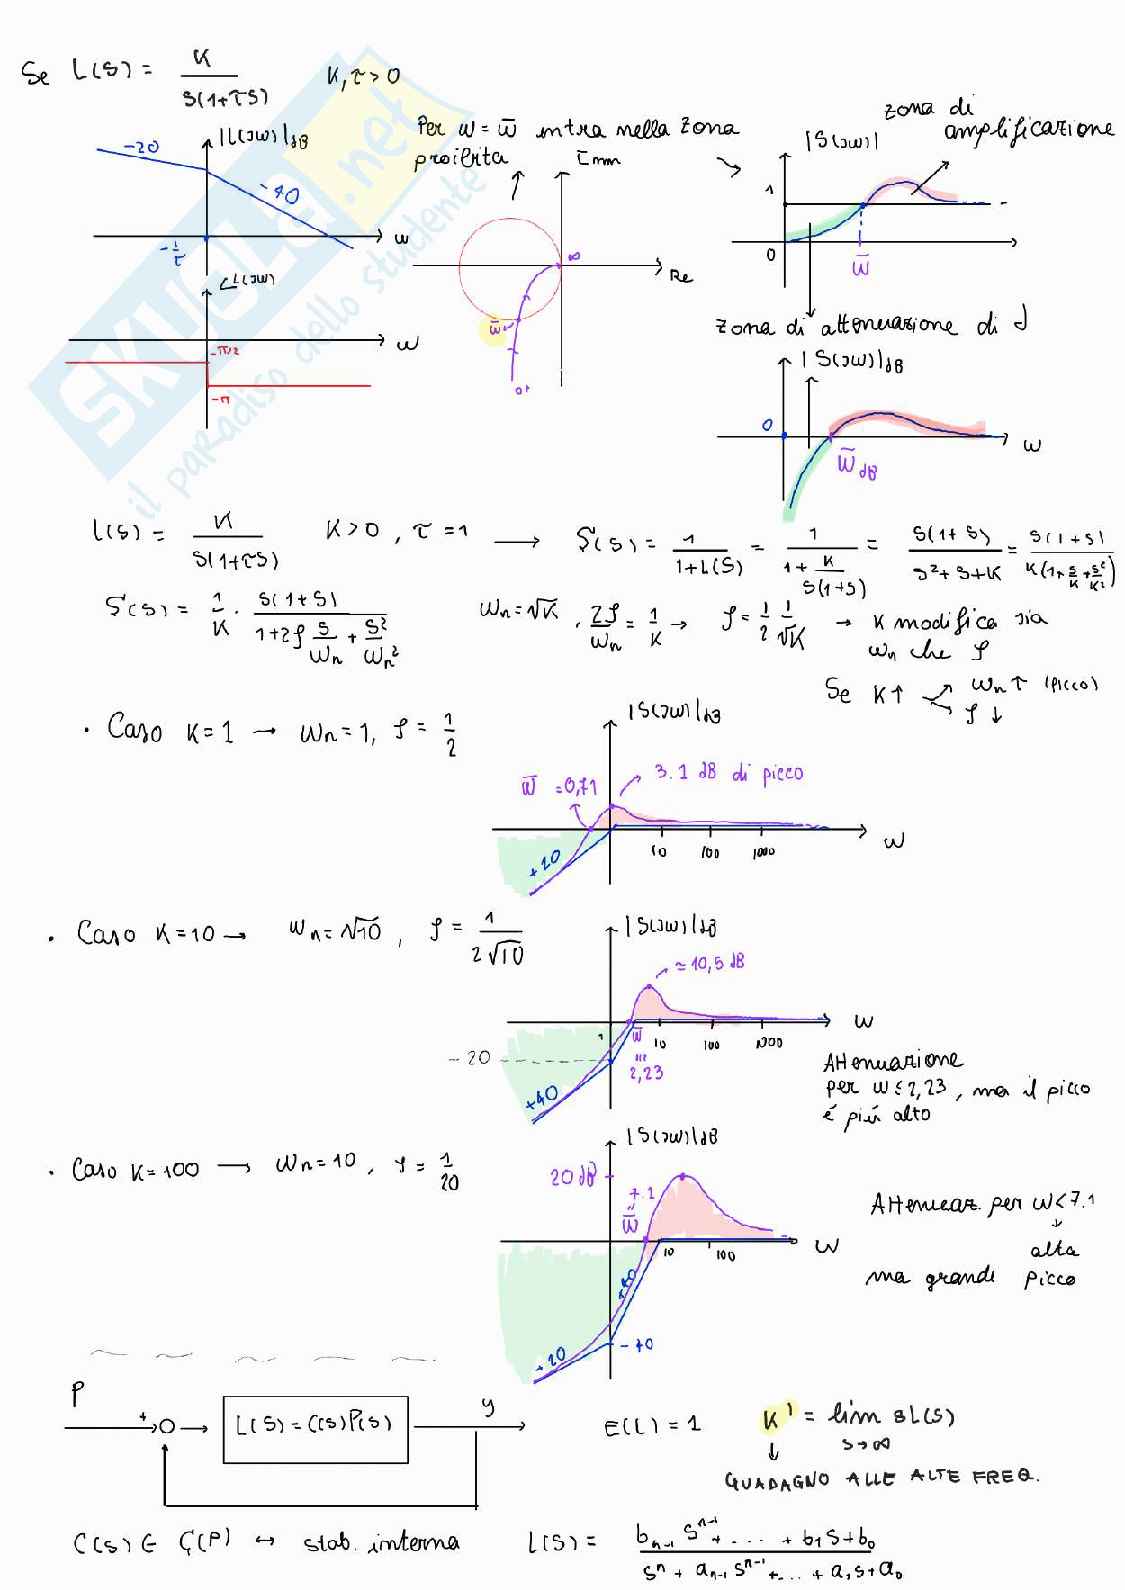 Se L(s) = K / s(1+τs)    K, τ > 0
|L(jw)|dB
-20
-40
-1/τ
w
∠L(jw)
-π/2
-π
w
Per w = w̄ entra nella zona
proibita
Imm
Re
∞
w̄
0+
zona di
amplificazione
|S(jw)|
1
0
w̄
zona di attenuazione di d
|S(jw)|dB
0
w̄dB
w
L(s) = K / s(1+τs)    K>0, τ=1 → S(s) = 1 / 1+L(s) = 1 / 1+ K / s(1+s) = s(1+s) / s²+s+K = s(1+s) / K(1+ s/K + s²/K²)
S(s) = 1/K · s(1+s) / 1+2ρ s/wn + s²/wn²    wn=√K , 2ρ/wn = 1/K → ρ = 1/2 1/√K → K modifica sia
wn che ρ
Se K↑ wn↑ (picco)
ρ↓
· Caso K=1 → wn=1, ρ = 1/2
|S(jw)|dB
w̄ = 0,71
3.1 dB di picco
+20
10 100 1000
w
· Caso K=10 → wn=√10 , ρ = 1 / 2√10
|S(jw)|dB
≃10,5 dB
w
1 w̄ 10 100 1000
-20
2,23
+40
Attenuazione
per w≤2,23, ma il picco
é più alto
· Caso K=100 → wn=10, ρ = 1/20
|S(jw)|dB
20 dB
7.1
w̄
10 100
w
+40
+20
-40
Attenuaz. per w<7.1
alta
ma grande picco
P
+
L(s) = C(s)P(s)
y
E(L) = 1    K' = lim sL(s)
s→∞
GUADAGNO ALLE ALTE FREQ.
C(s) ∈ Ç(P) ↔ stab. interna    L(s) = bn-1 s^n-1 + .... + b1s+b0 / s^n + an-1 s^n-1 + ... + a1s+a0
SKUOLA.net
il paradiso dello studente